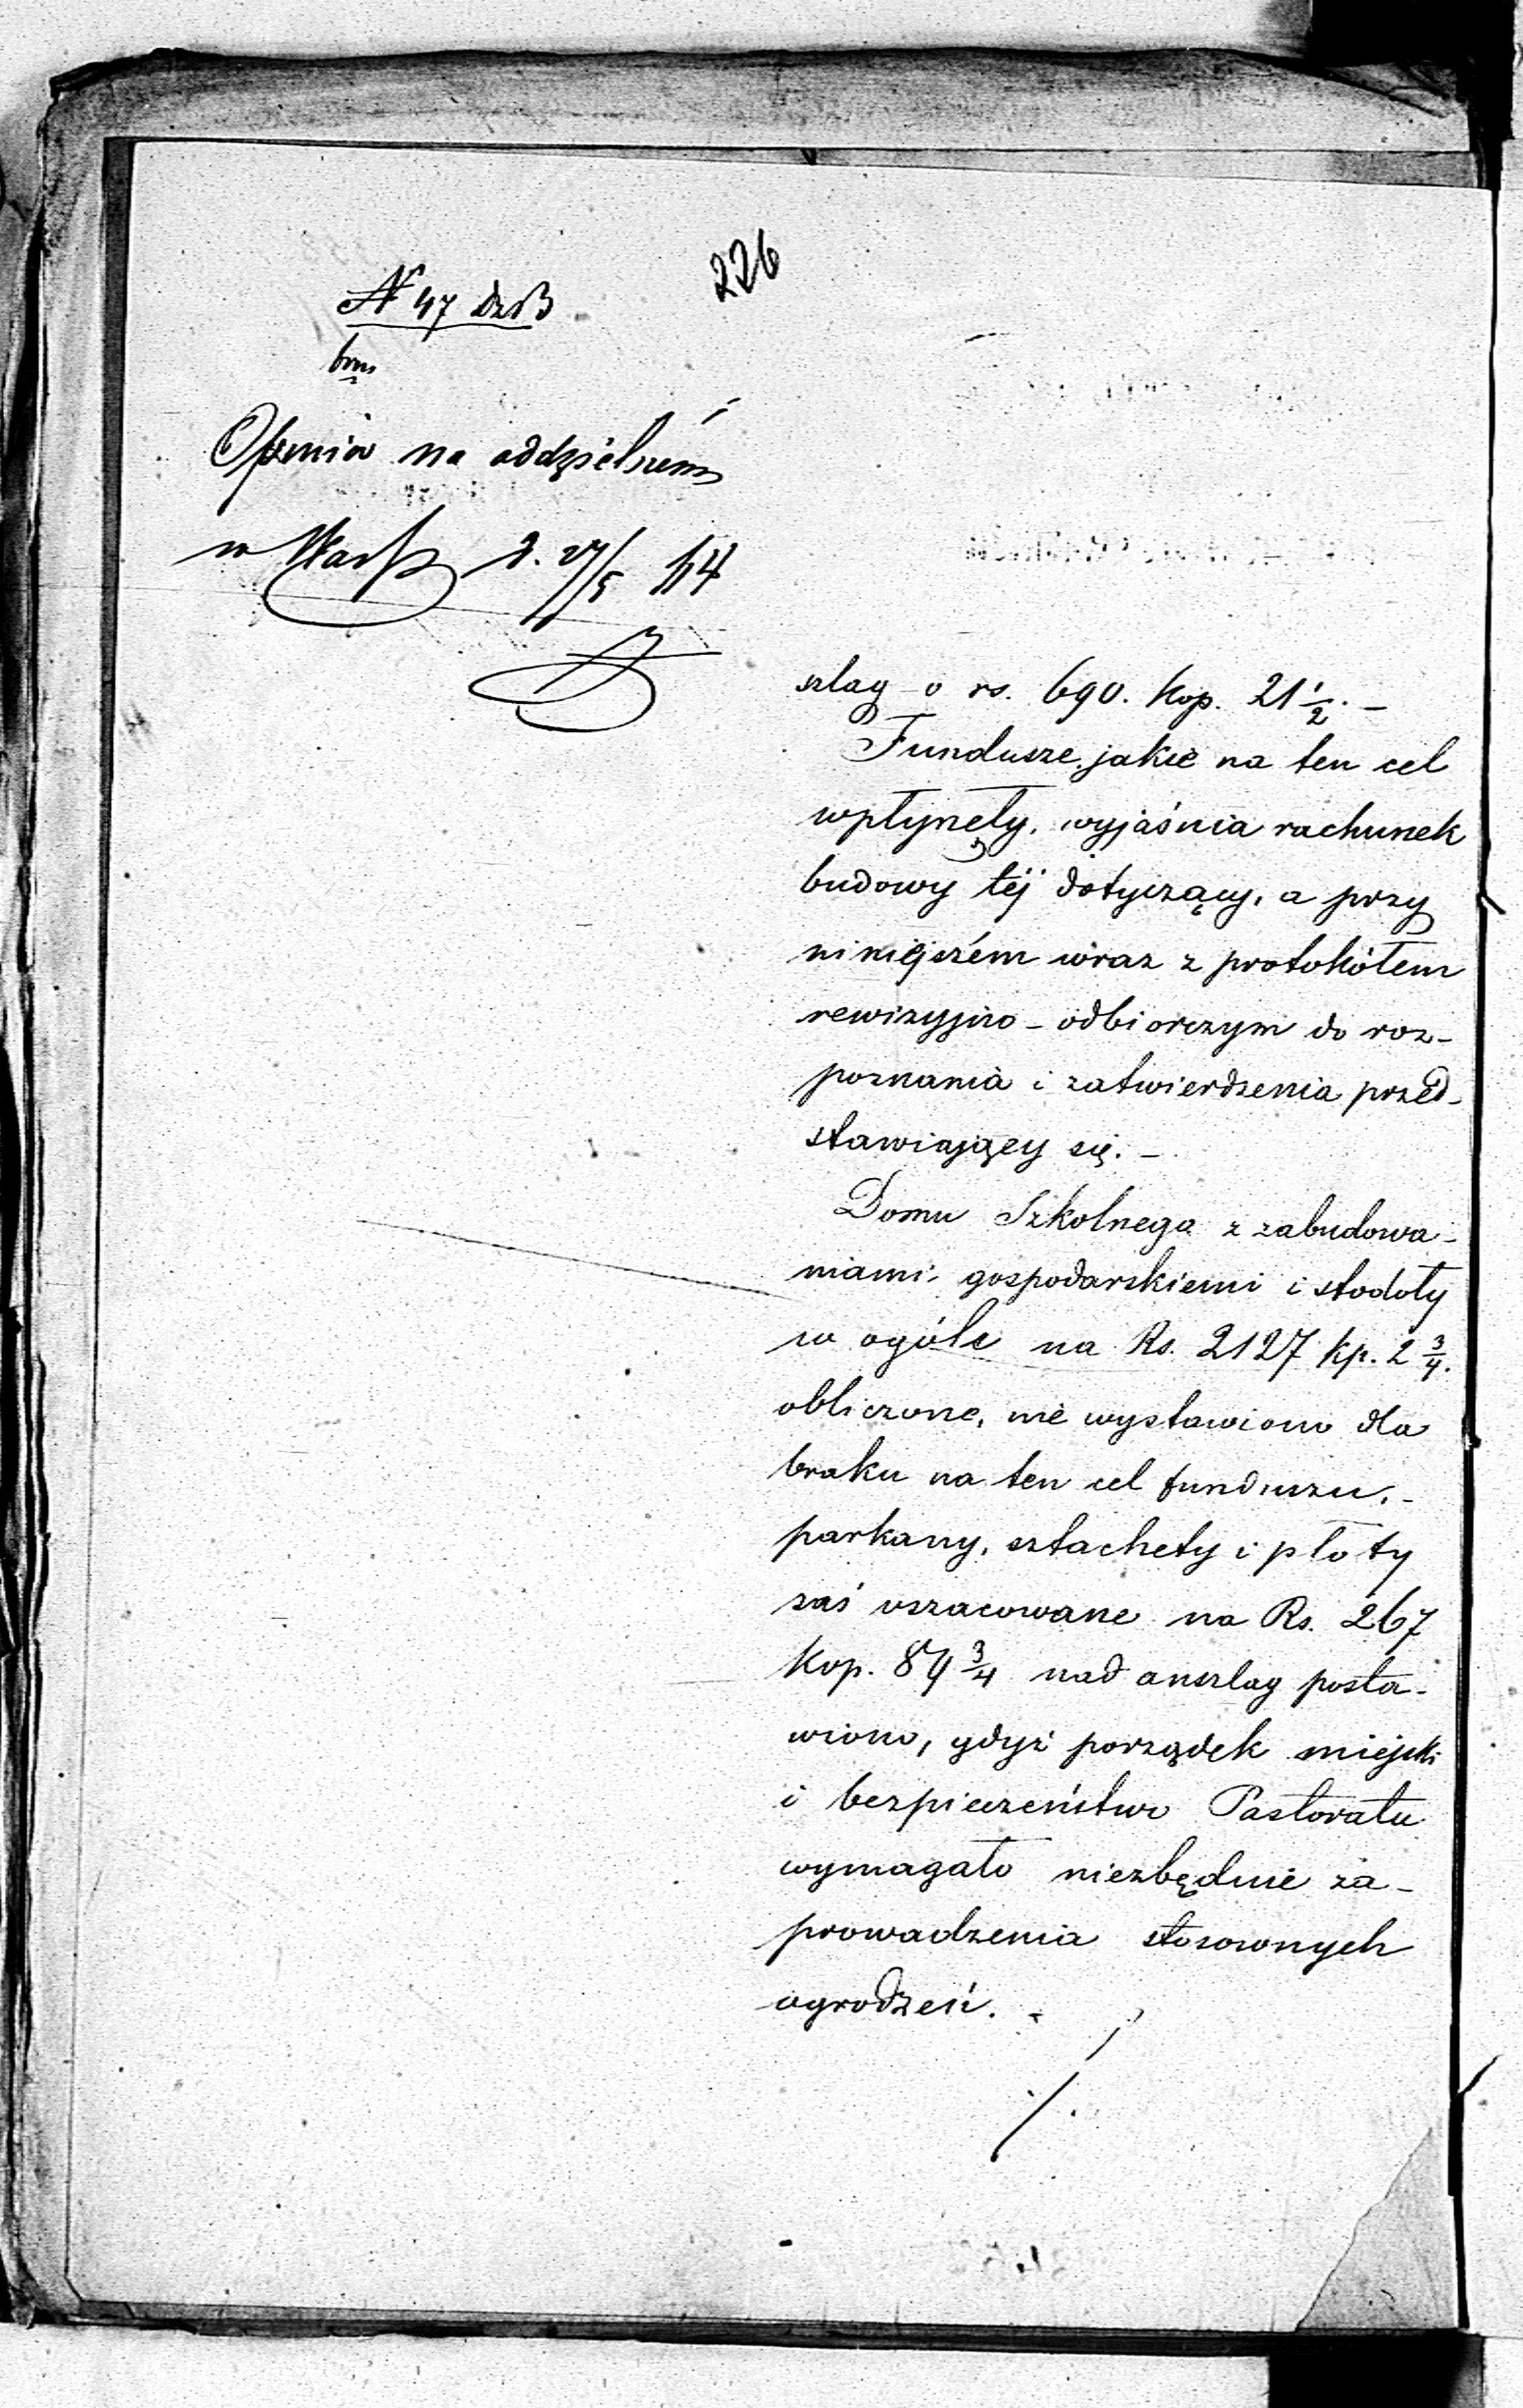 226
N 47 DzB
Opinia na oddzielném
w Warsz d. 27/5 64
szlag o rs. 690. kop. 21 1/2. –
Fundusze jakie na ten cel
wpłynęły, wyjaśnia rachunek
budowy téj dotyczący, a przy
niniejszém wraz z protokółem
rewizyjno-odbiorczym do roz-
poznania i zatwierdzenia przed-
stawiający się. –
Domu Szkolnego z zabudowa-
niami gospodarskiemi i stodoły
w ogóle na Rs. 2127 kp. 2 3/4.
obliczone, nie wystawiono dla
braku na ten cel funduszu. –
parkany, sztachety i płoty
zaś oszacowane na Rs. 267
kop. 84 3/4 nad anszlag posta-
wiono, gdyż porządek miejski
i bezpieczeństwo Pastoratu
wymagało niezbędnie za-
prowadzenia stosownych
ogrodzeń. –
./.